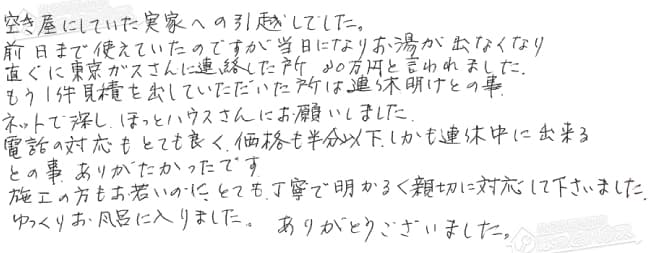 空き屋にしていた実家への引越しでした。
前日まで使えていたのですが当日になりお湯が出なくなり
直ぐに東京ガスさんに連絡した所 20万円と言われました。
もう1件見積を出していただいた所は連休明けとの事
ネットで探し、ほっとハウスさんにお願いしました。
電話の対応もとても良く、価格も半分以下、しかも連休中に出来る
との事 ありがたかったです
施工の方もお若いのに、とても丁寧で明かるく親切に対応して下さいました。
ゆっくりお風呂に入りました。 ありがとうございました。